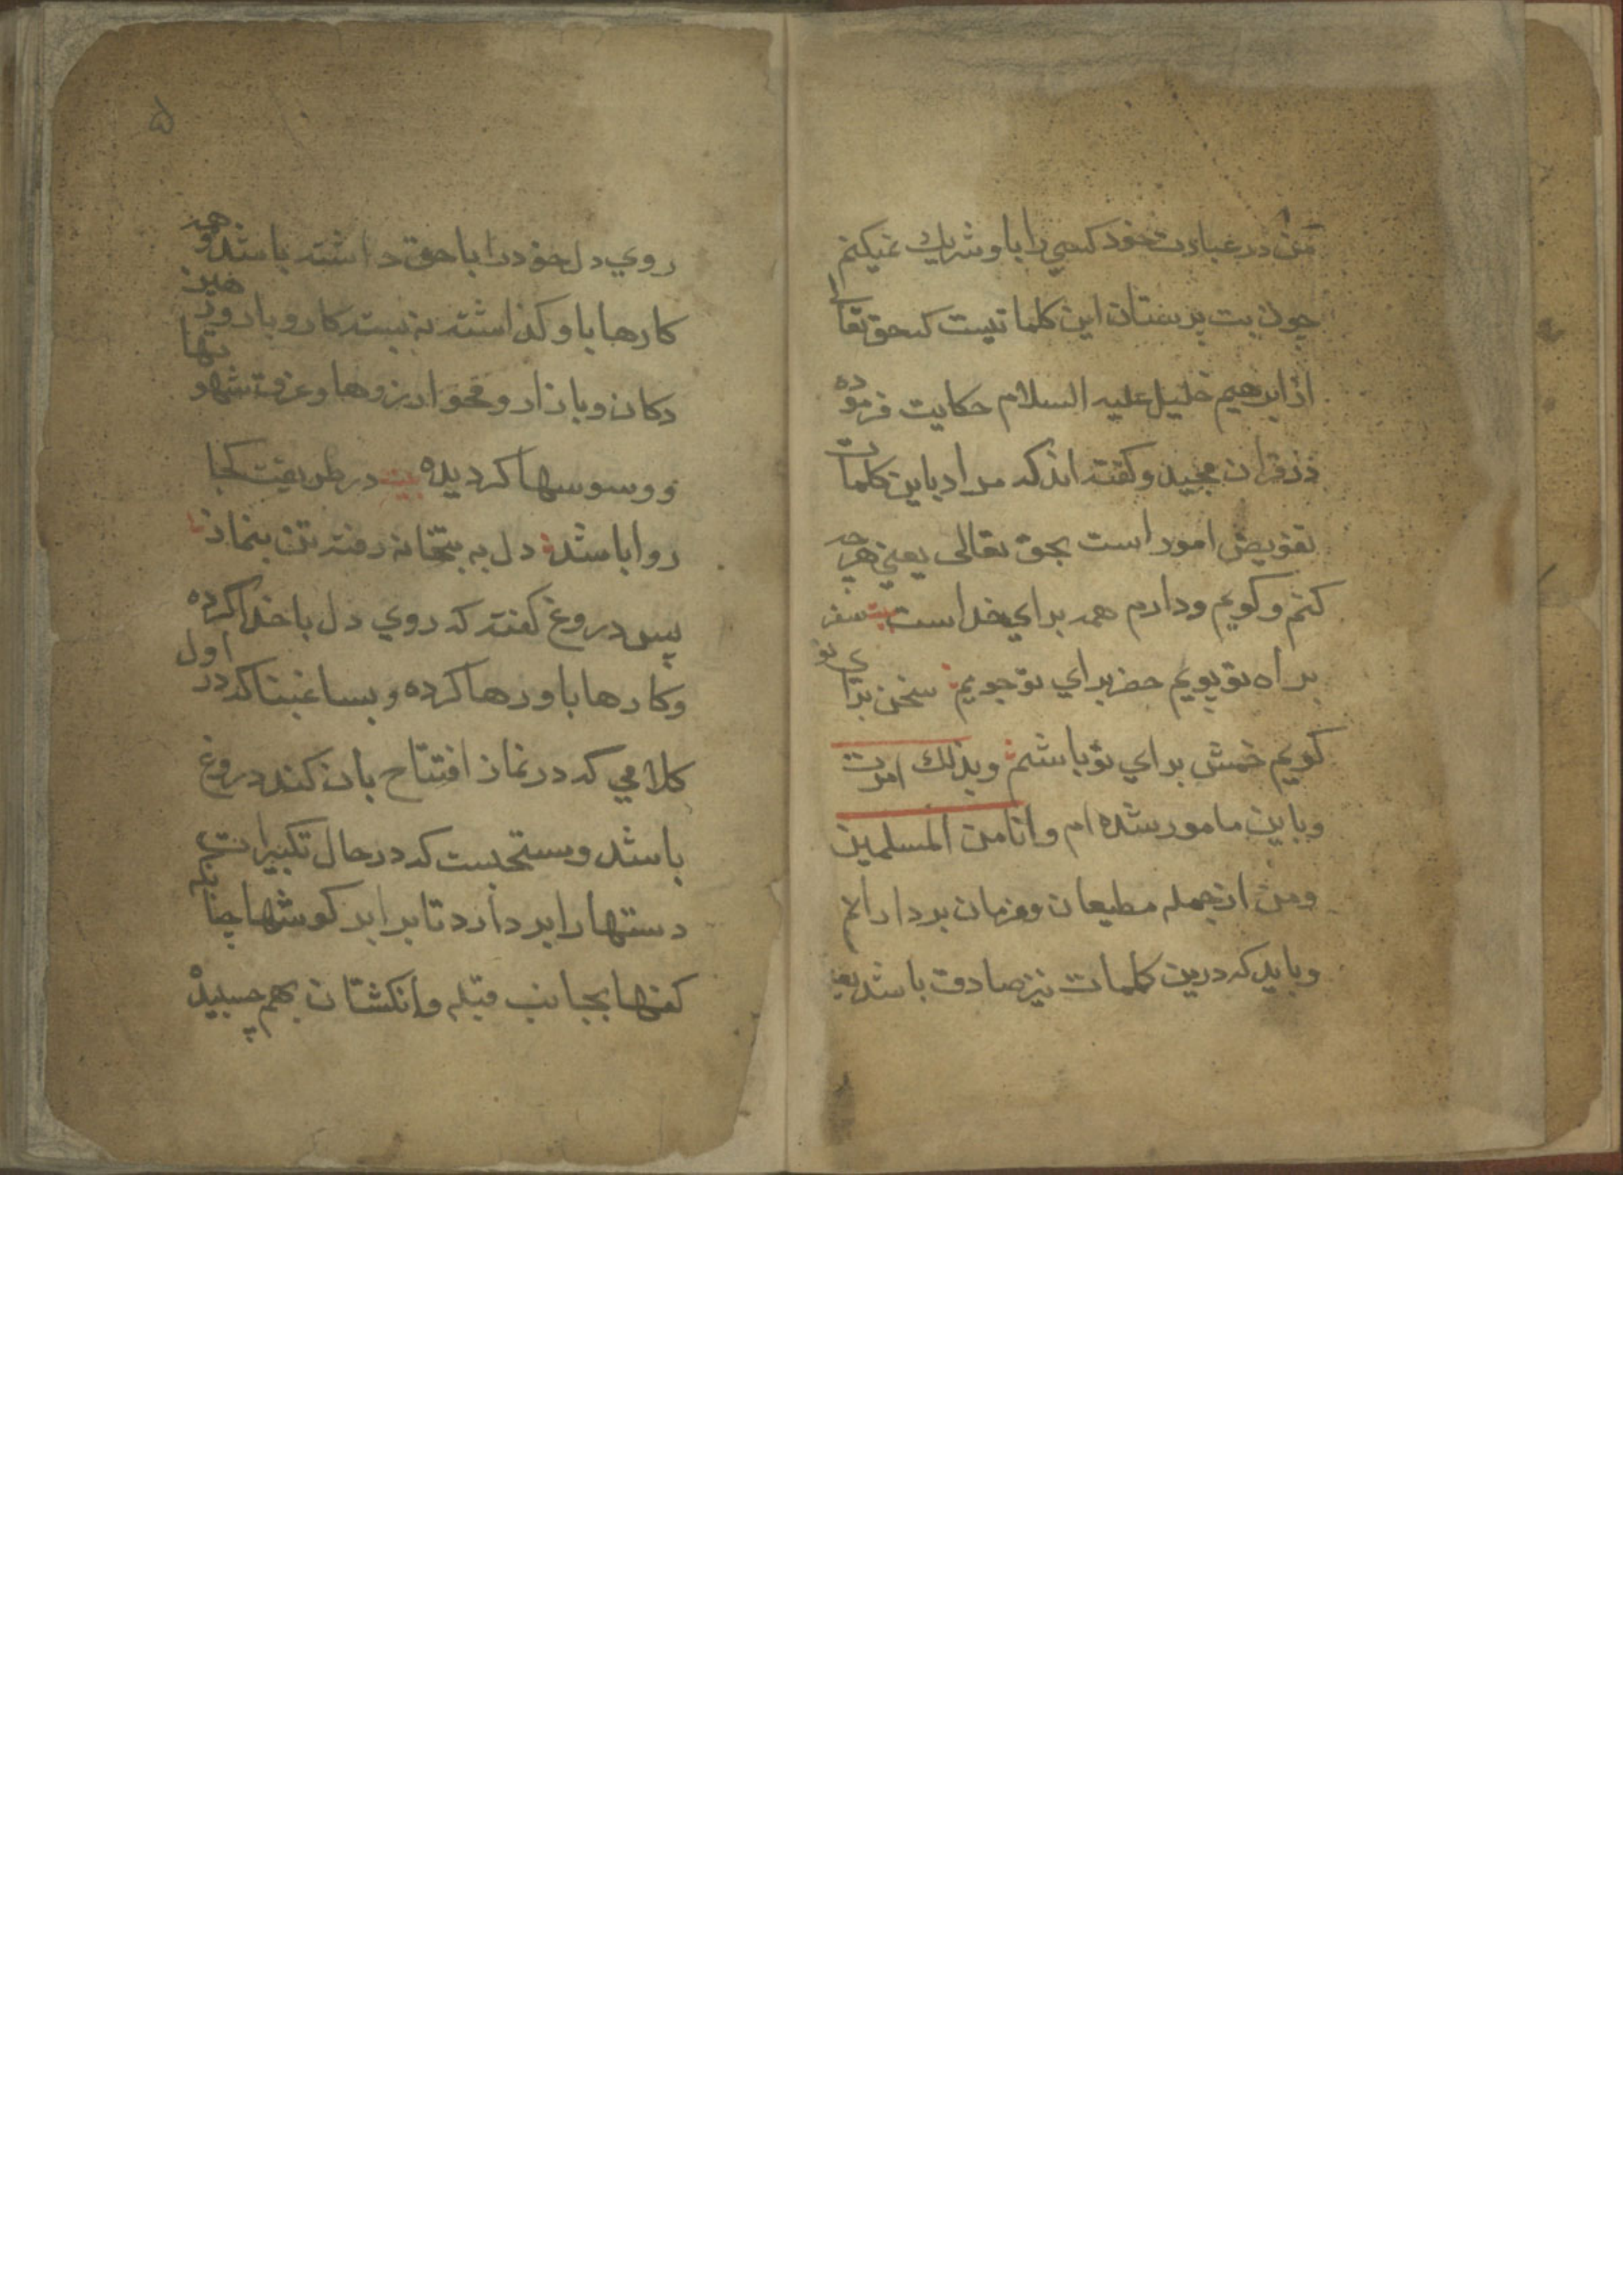 من در عبادت خود کسی را با او شریك نمیکنم
چون بت پرستان این کلماتیست که حق تعالی
از ابرهیم خلیل علیه السلام حکایت فرموده
در قران مجید و کفته اند که مراد باین کلمات
تفویض امور است بحق تعالی یعنی هرچه
کنم و کویم و دارم همه برای خداست بیت سفر
براه تو پویم حضر برای تو جویم سخن برای تو
کویم خمش برای تو باشم وبذلك امرت
و باین مامور شده ام وانا من المسلمین
و من از جمله مطیعان و فرمان بردارانم
و باید که درین کلمات نیز صادق باشد یعنی
۵
روی دل خود را با حق داشته باشد و همه
کارها باو کذاشته نه بسته کار و بار و در
دکان و بازار و محو ارزوها و غرق شهوتها
و وسوسها کردیده بیت در طریقت کجا
روا باشد دل به بتخانه رفته تن بنماز
پس دروغ کفته که روی دل باخدا کرده
و کارها باو رها کرده و بسا غبنا که در اول
کلامی که در نماز افتتاح بان کند دروغ
باشد و مستحبست که در حال تکبیرات
دستها را بر دارد تا برابر کوشها چنانکه
کفها بجانب قبله و انکشتان بهم چسبیده